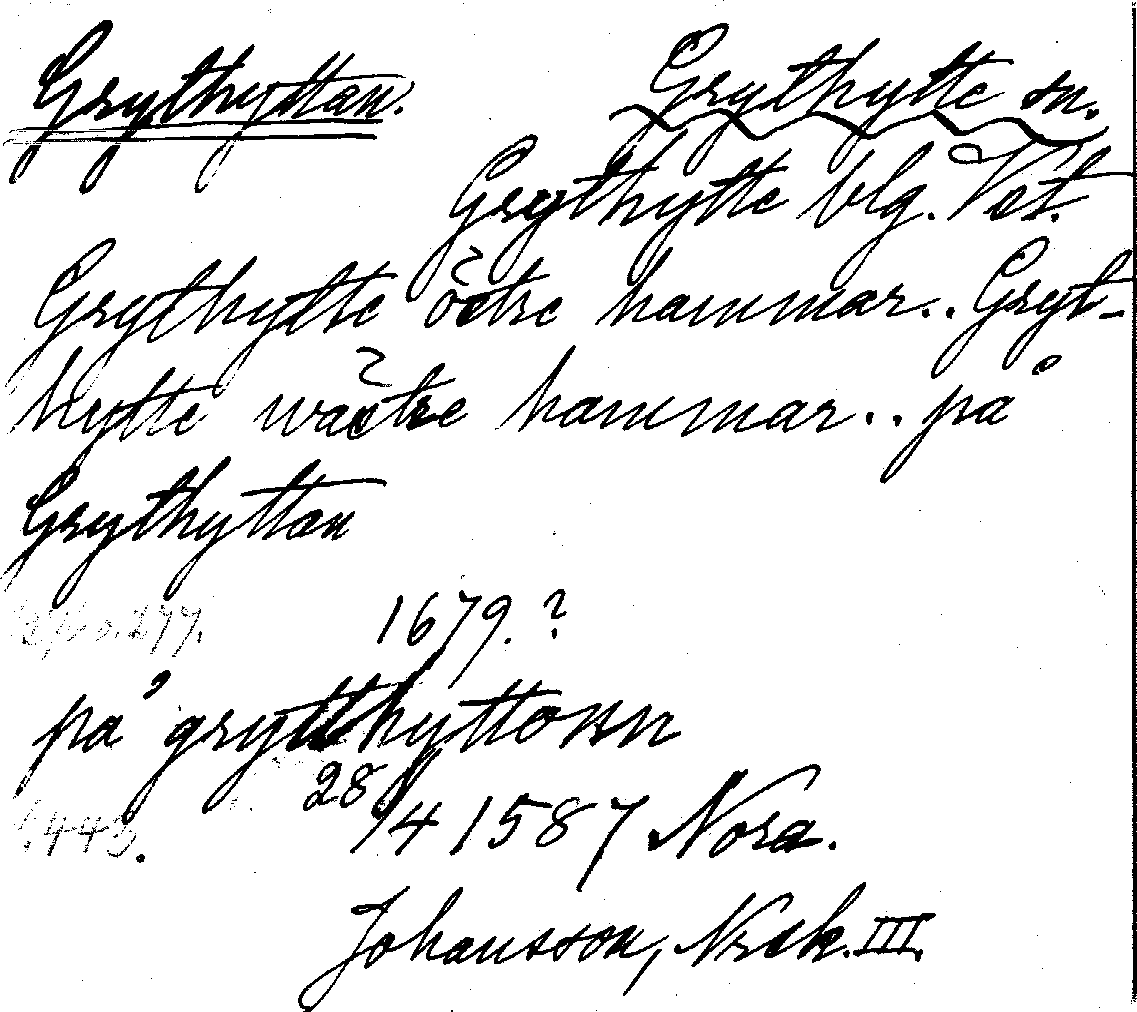 Grythyttan. Grythytte sn.
Grythytte blg. Vst.
Grythytte östre hammar.. Gryt-
hytte wästre hammar.. på
Grythyttan
s. 277. 1679. ?
på grytthyttonn
28/4 1587 Nora.
443.
Johansson, Nrck. III.